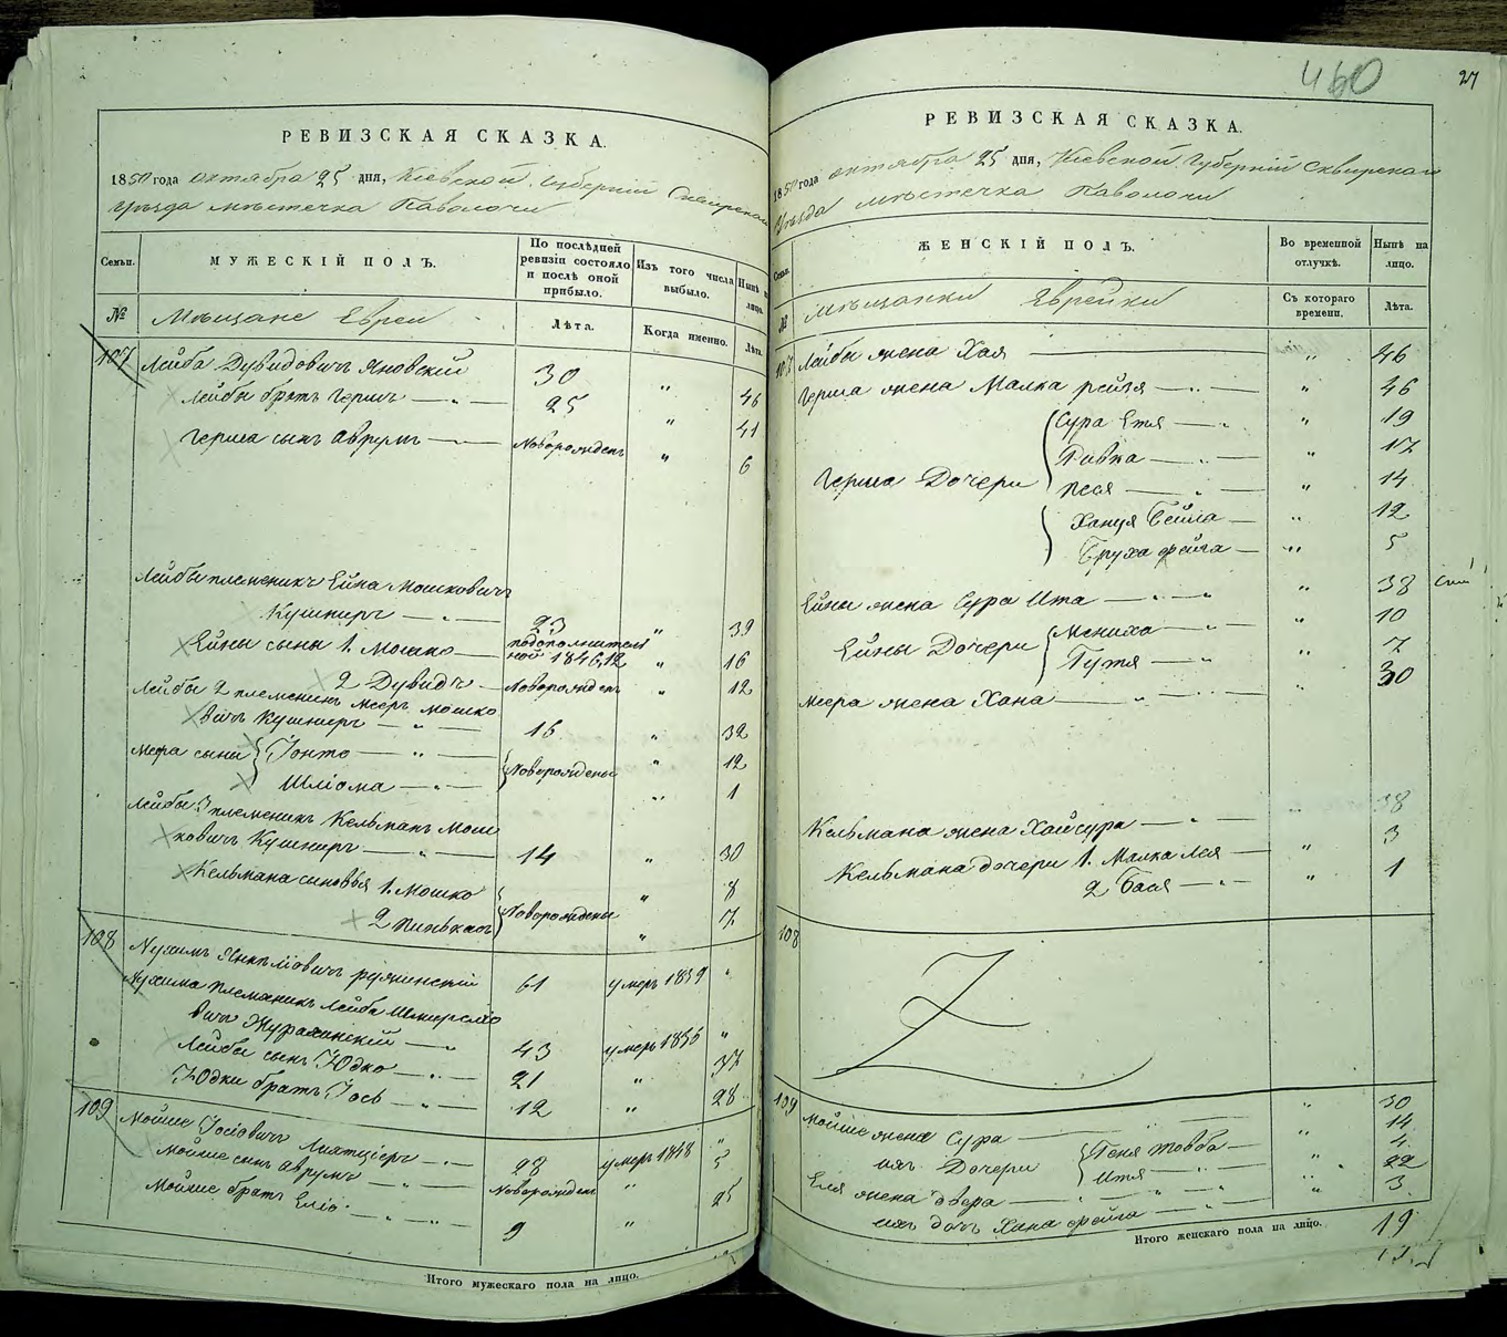 РЕВИЗСКАЯ СКАЗКА.
1850 года октября 25 дня, Киевской Губерніи Сквирскаго
Уѣзда мѣстечка Паволочи
Семьи.
МУЖЕСКІЙ ПОЛЪ.
По послѣдней ревизіи состояло и послѣ оной прибыло.
Изъ того числа выбыло.
Нынѣ на лицо.
№
Мѣщане Евреи
Лѣта.
Когда именно.
Лѣта.
107 Лейба Дувидовичъ Яновскій 30 " 46
Лейбы братъ Гершъ 25 " 41
Герша сынъ Аврумъ Новорожденъ " 6
Лейбы племеникъ Ейна Мошковичъ
Кушниръ 23 " 39
Ейны сыны 1. Мошко 1846, 12 " 16
2 Дувидъ Новорожденъ " 12
Лейбы 2 племеникъ Мееръ Мошко
вичъ Кушниръ 16 " 32
Меера сыны Іонто " 12
Шліома Новорождены " 1
Лейбы 3 племеникъ Кельманъ Мош
ковичъ Кушниръ 14 " 30
Кельмана сыновья 1. Мошко " 8
2 Новорождены " 7
108 Нухимъ Янкеліовичъ Ружинскій 61 умеръ 1839 "
Нухима племяникъ Лейба
вичъ 43 умеръ 1836 "
Лейбы сынъ Юдко 21 " 37
Юдки братъ Іось 12 " 28
109 Мойше Іосіовичъ 28 умеръ 1848 "
Мойше сынъ Аврумъ Новорожденъ " 5
Мойше братъ Еліо 9 " 25
Итого мужескаго пола на лицо.
460
27
РЕВИЗСКАЯ СКАЗКА.
1850 года октября 25 дня, Кіевской Губерніи Сквирскаго
Уѣзда мѣстечка Паволочи
Семьи.
ЖЕНСКІЙ ПОЛЪ.
Во временной отлучкѣ.
Нынѣ на лицо.
№
Мѣщанки Еврейки
Съ котораго времени.
Лѣта.
107 Лейбы жена Хая " 46
Герша жена Малка рейзя " 46
Сура Етя " 19
Ривка " 17
Герша Дочери Песя " 14
Хануя Бейла " 12
Бруха фейга " 5
Ейны жена Сура Ита " 38
Ейны Дочери Мениха " 10
Гутя " 7
Меера жена Хана " 30
Кельмана жена Хайсура " 38
Кельмана дочери 1. Малка Лея " 3
2 Бася " 1
108
109 Мойше жена Сура " 30
ихъ Дочери Геня Товба " 14
Итя " 4
Еля жена Двера " 22
ихъ дочь Хана фейга " 3
Итого женскаго пола на лицо. 19